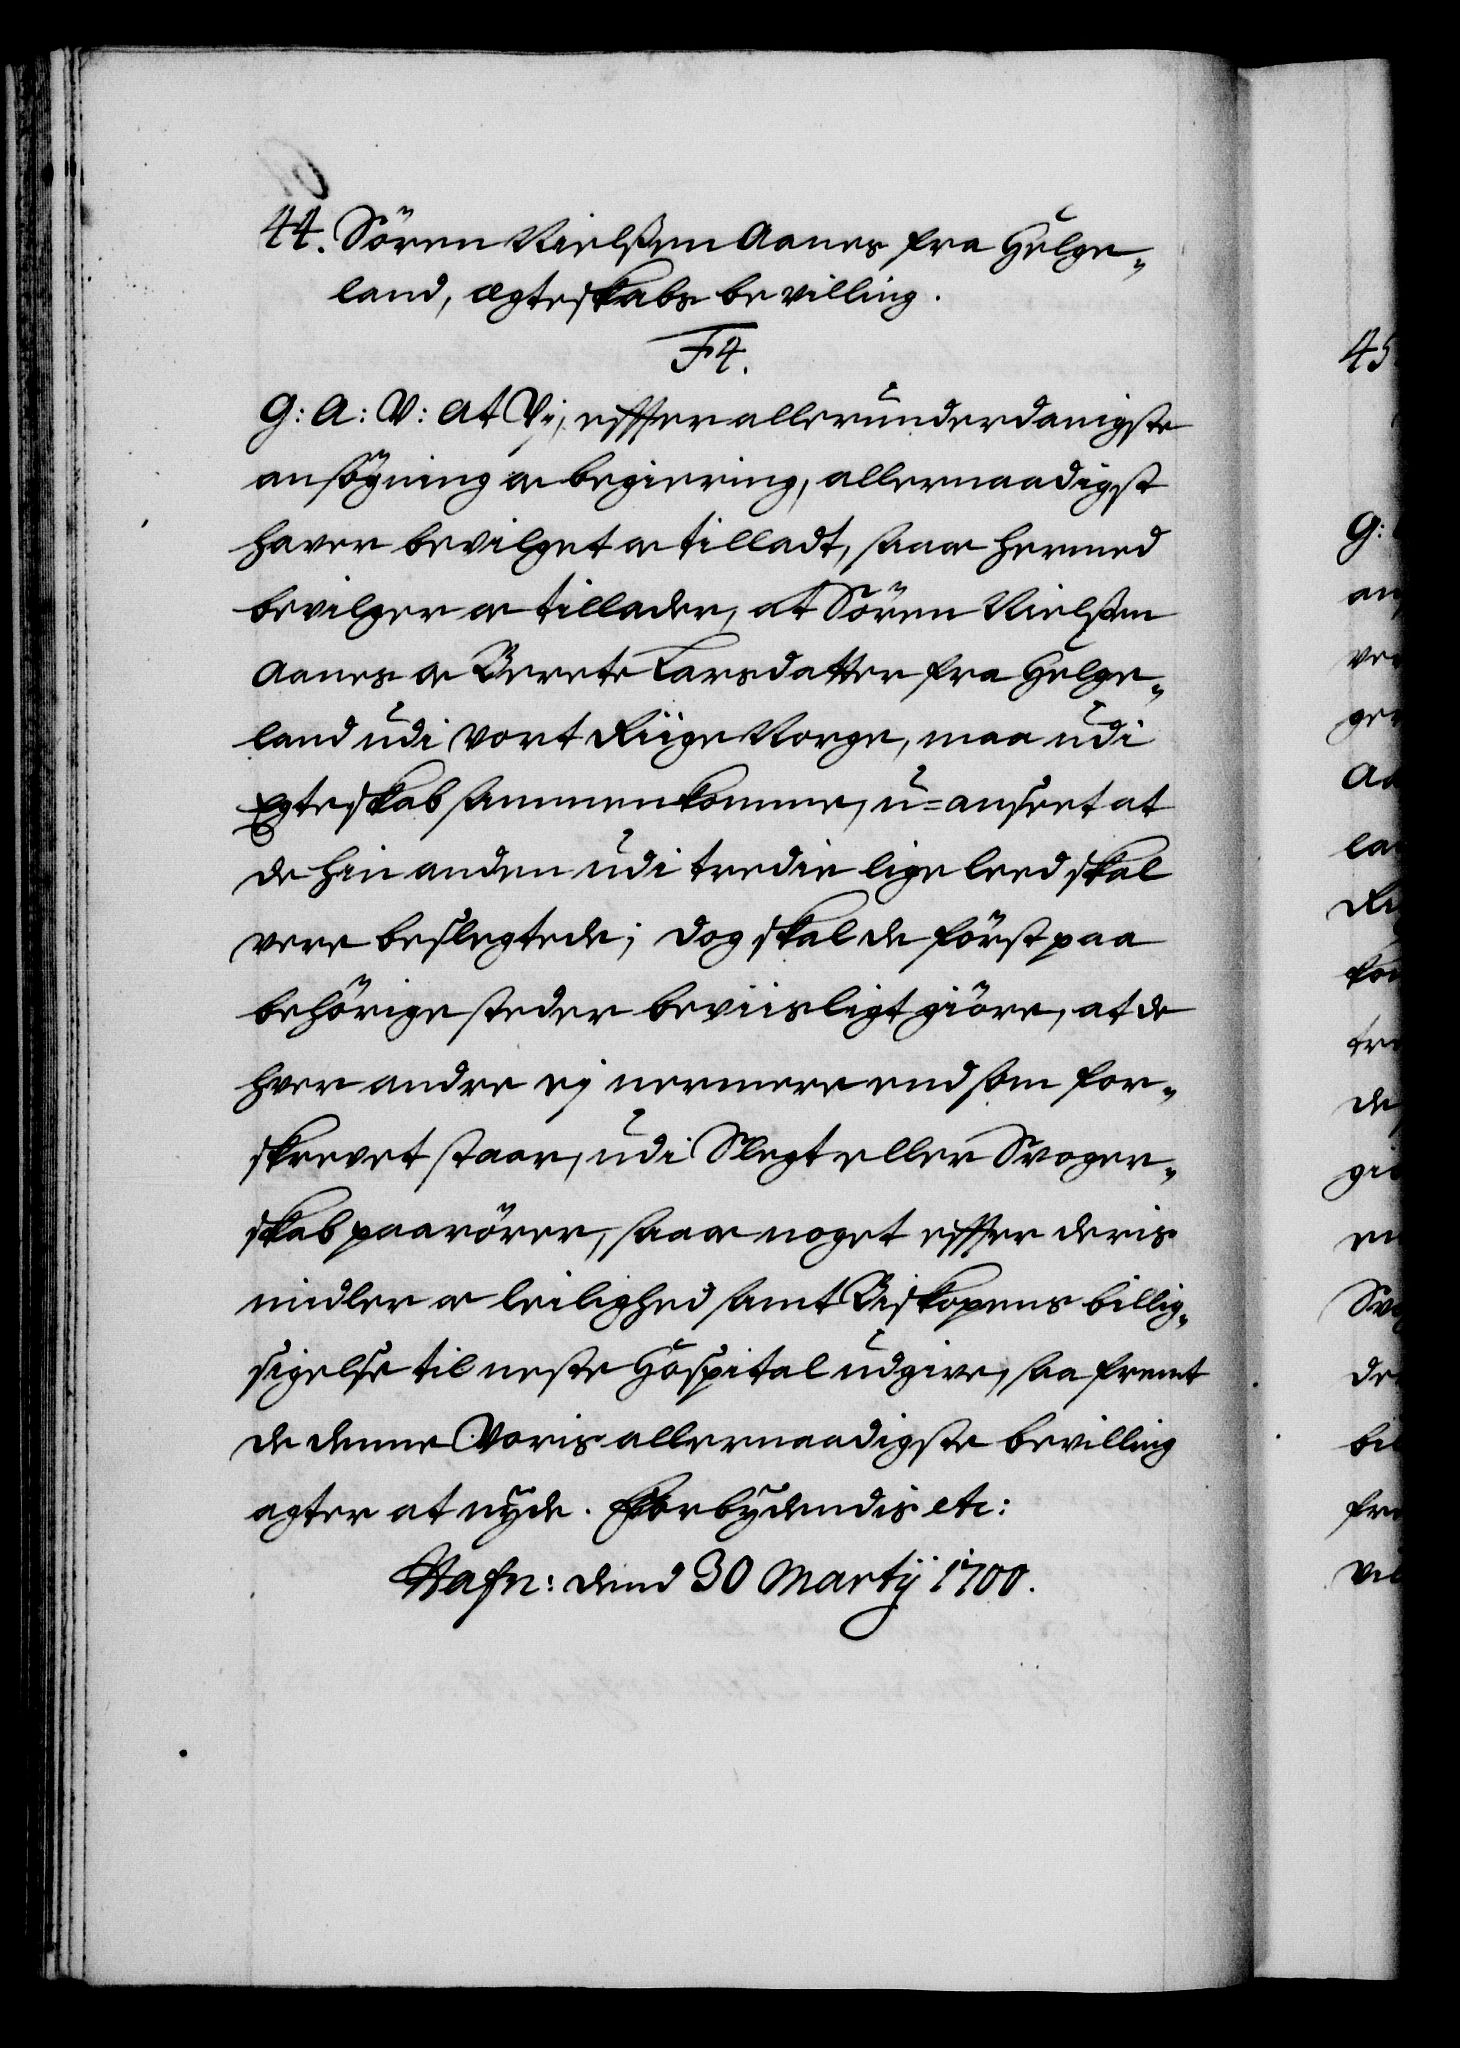 44. Sören Nielßen Aanes fra Helge-
land, ægteskabs bevilling.
F4.
G: A: V: at Vj, effter allerunderdanigste
ansögning og begiering, allernaadigst
hafver bevilget og tilladt, saa og hermed
bevilger og tillader, at Sören Nielßen
Aanes og Berete Larsdatter fra Helge-
land udi vort Riige Norge, maa udi
Egteskab sammenkomme, u=anseet at
de hin anden udi tredie lige leed skal
vere beslegtede; dog skal de först paa
behörige steder beviisligt giöre, at de
hver andre ej nermere end som for-
skrevet staar, udi Slegt eller Svoger-
skab paarörer, saa og noget effter deris
midler og leilighed samt Biskopens billig-
sigelse til neste Hospital udgive, saa fremt
de denne Voris allernaadigste bevilling
agter at nyde. Forbydendis etc:
Hafn: dend 30 Martij 1700.
45
G:
an
ve
ger
Aa
la
Ri
kom
tre
de
giö
en
Svo
de
bil
fre
vil